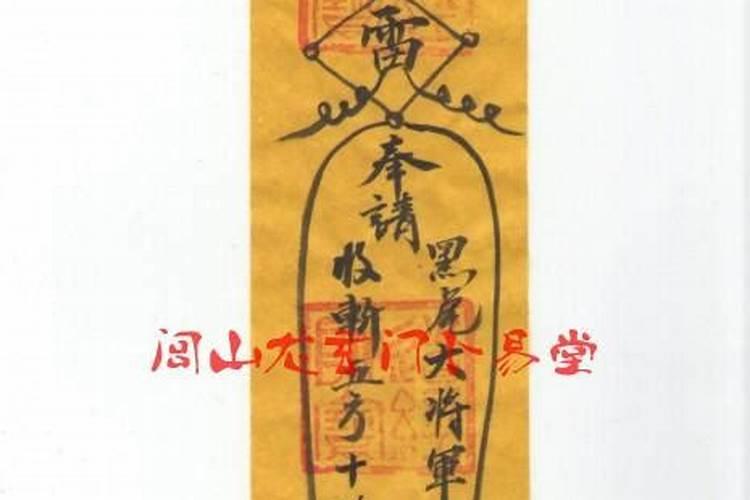 雷
奉請
黑虎大将軍
收斬五方十
闾山龙玄门易堂